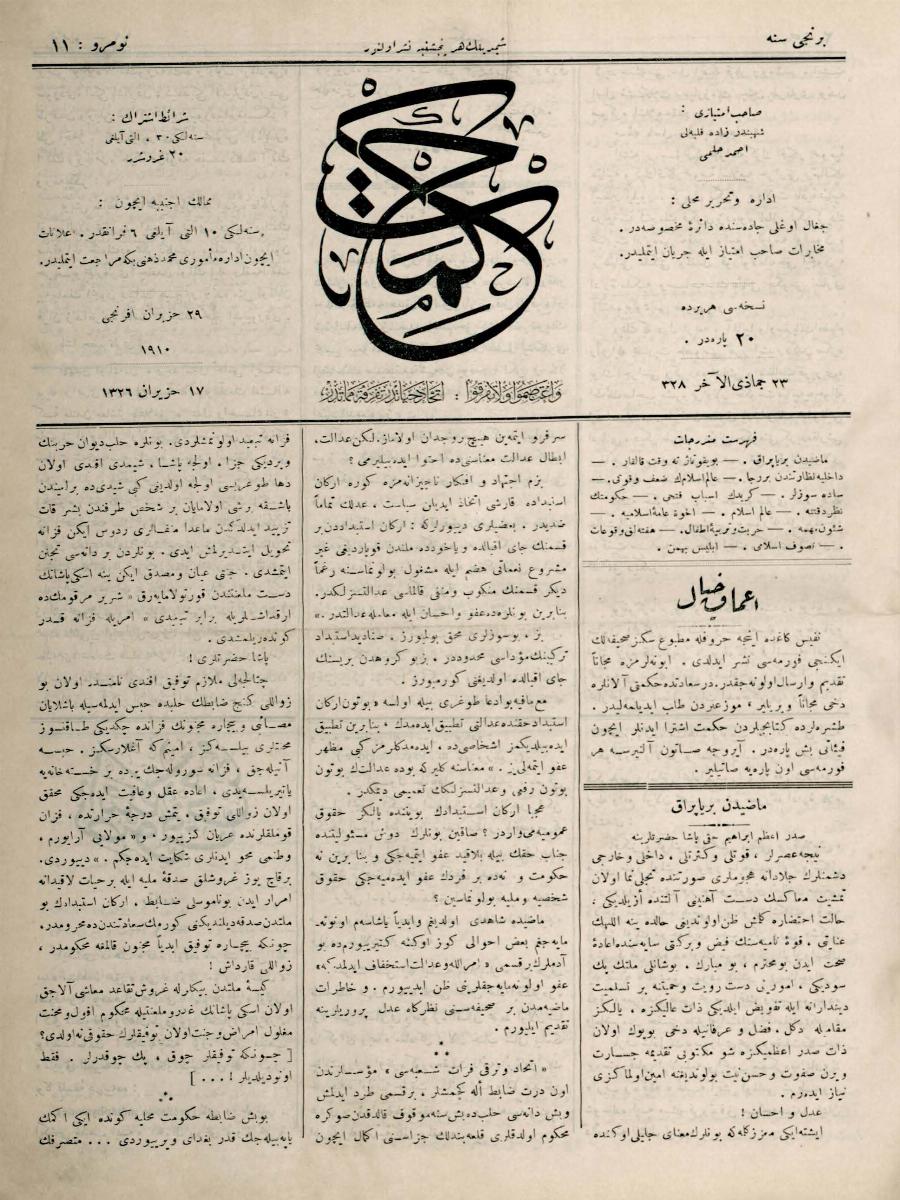 برنجی سنه
شمدیلك هر پنجشنبه نشر اولنور
نومرو : ١١
صاحب امتیازی :
شهبندر زاده فلبه‌لی
احمد حلمی
اداره وتحریر محلی :
جغال اوغلی جاده‌سنده دائرهٔ مخصوصه‌در .
مخابرات صاحب امتیاز ایله جریان ایتملیدر.
نسخه‌سی هر یرده
٢٠ پاره‌در .
٢٣ جماذی الآخر ٣٢٨
حكمت
واعتصموا ولا تفرقوا : اتحاد حیاتدر تفرقه مماتدر
شرائط اشتراك :
سنه‌لكی ٣٠ ، التی آیلغی
٢٠ غروشدر
ممالك اجنبیه ایچون :
سنه‌لكی ١٠ التی آیلغی ٦ فرانقدر . اعلانات
ایچون اداره مأموری محمد ذهنی بكه مراجعت ایتملیدر.
٢٩ حزیران افرنجی
١٩١٠
١٧ حزیران ١٣٢٦
فهرست مندرجات
ماضیدن بر یاپراق . — بویقوتاژ نه وقت قالقار . —
داخلیه نظارتندن بر رجا . — عالم اسلامك ضعف وقوتی . —
ساده سوزلر . — كریدك اسباب فتحی . — حكومتك
نظر دقتنه . — عالم اسلام . — اخوة عامهٔ اسلامیه . —
شئون مهمه . — حریت وتربیهٔ اطفال . — هفته‌لق وقوعات
. — تصوف اسلامی . — ابلیس بهمن .
اعماق خیال
نفیس كاغده اینجه حروفله مطبوع سكز صحیفه‌لك
ایكنجی فورمه‌سی نشر ایدلدی . ابونه‌لرمزه مجاناً
تقدیم وارسال اولونه‌جقدر. درسعادتده حكمتی آلانلره
دخی مجاناً ویریلیر ، موزعندن طلب ایدیلمه‌لیدر .
طشره‌لرده كتابجیلردن حكمت اشترا ایدنلر ایچون
فیئاتی بش پاره‌در . آیروجه صاتون آلنیرسه هر
فورمه‌سی اون پاره‌یه صاتیلیر .
ماضیدن بر یاپراق
صدر اعظم ابراهیم حقی پاشا حضرتلرینه
نیجه عصرلر ، قوتلی وكثرتلی . داخلی وخارجی
دشمنلرك جلادانه هجوملری صورتنده تجلی نما اولان
تمشیت معاكسك دست آهنینی آلتنده ازیلدیكی ،
حالت احتضاره كلمش ظن اولوندیغی حالده ینه اللهك
عنایتی ، قوهٔ نامیه‌سنك فیض وبركتی سایه‌سنده اعادهٔ
صحت ایدن بو محترم ، بو مبارك . بو شانلی ملتك پك
سودیكی ، امورینی دست رویت وحمیتنه بر تسلمیت
دیندارانه ایله تفویض ایلدیكی ذات عالیكزه . یالكز
مقامله دكل . فضل و عرفانیله دخی بویوك اولان
ذات صدر اعظمیكزه شو مكتوبی تقدیمه جسارت
ویرن صفوت وحسن نیت بولوندیغنه امین اولماكزی
نیاز ایده‌رم .
عدل و احسان !
ایشته ایكی معزز كلمه كه بونلرك معنای جلیلی اوكنده
سرفرو ایتمه‌ین هیچ بر وجدان اولاماز. لكن عدالت،
ابطال عدالت معناسنی‌ده احتوا ایده‌بیلیرمی ؟
بزم اجتهاد و افكار ناچیزانه‌مزه كوره اركان
استبداده قارشی اتخاذ ایدیلن سیاست ، عدلك تماماً
ضدیدر . بعضیلری دییورلر كه : اركان استبداددن بر
قسمنك جای اقبالده و یا خود ده ملتدن قوپاردیغی غیر
مشروع نعماتی هضم ایله مشغول بولونماسنه رغماً
دیكر قسمنك منكوب ومنفی قالماسی عدالتسزلكدر.
بناء برین بونلره‌ده عفو واحسان ایله معامله عدالتدر.»
بز ، بو سوزلری محق بولمیورز . صنادید استبداد
تركیبنك مؤداسی محدوددر ، بز بو كروهدن بریسنك
جای اقبالده اولدیغنی كورمیورز .
مع مافیه بو ادعا طوغری بیله اولسه « بوتون اركان
استبداد حقنده عدالتی تطبیق ایده‌مدك ، بناء برین تطبیق
ایده‌بیلدیكمز اشخاصی‌ده ، ایده‌مدكلرمز كبی مظهر
عفو ایتمه‌لی‌یز . » معناسنه كلیر كه بوده عدالتك بوتون
بوتون رفعی وعدالتسزلكك تعمیمی دیمكدر .
عجبا اركان استبدادك بوینـنده یالكز حقوق
عمومیه‌می واردر ؟ صاقین بونلرك دوش مسئولیتنده
جناب حقك بیله بلاقید عفو ایتمیه‌جكی و بناء برین نه
حكومت و نه‌ده بر فردك عفو ایده‌میه‌جكی حقوق
شخصیه و ملیه بولونماسین ؟
ماضیده شاهدی اولدیغم وابدیاً یاشاسه‌م اونوته-
مایه‌جغم بعض احوالی كوز اوكنه كتیرییورم‌ده بو
آدملرك بر قسمی « امر الله وعدالت استخفاف ایدلمدكجه»
عفو اولونه‌مایه‌جقلرینی ظن ایدییورم . و خاطرات
ماضیه‌مدن بر صحیفه‌سنی نظركاه عدل پرورلرینه
تقدیم ایلیورم .
* *
« اتحاد وترقی فزان شعبه‌سی » مؤسسلرندن
اون درت ضابط أله كچمشلر . بر قسمی طرد ایدلمش
وبش دانه‌سی حلبده بش سنه موقوف قالدقدن صوكره
محكوم اولدقلری قلعه‌بندلك جزاسنی اكمال ایچون
فزانه تبعید اولونمشلردی. بونلره حلب دیوان حربنك
ویردیكی جزا ، اولجه پاشا ، شیمدی افندی اولان
دها طوغریسی اولجه اولدیغی كبی شیمدی‌ده برامیندن
باشقه برشی اولمایان بر شخص طرفندن بشر قات
تزیید ایدلدكدن ماعدا منفالری ردوس ایكن فزانه
تحویل ایتدیرلمش ایدی . بونلردن بر دانه‌سی تجنن
ایتمشدی . جنتی عیان ومصدق ایكن ینه اسكی پاشانك
دست ملعنتندن قورتولامایه‌رق « شریر مرقومك‌ده
ارقداشلریله برابر تبعیدی » امریله فزانه قدر
كوندریلمشدی .
پاشا حضرتلری !
چتالجه‌لی ملازم توفیق افندی نامنده اولان بو
زواللی كنج ضابطك حلبده حبس ایدلمه‌سیله باشلایان
مصائبی و بیچاره مجنونك فزانده چكدیكی طاقتسوز
محنتلری بیلسه‌كز ، امینم كه آغلارسكز . حبسه
آتیله‌جق ، فزانه سوروله‌جك یرده بر خسته‌خانه‌یه
یاتیریلسه‌یدی ، اعاده عقل وعافیت ایده‌جكی محقق
اولان زواللی توفیق ، یتمش درجهٔ حرارتده ، فزان
قوملقلرنده عریان كزییور ، و « مولایی آرایورم .
وطنمی محو ایدنلری شكایت ایده‌جكم . » دییوردی.
بر قاچ یوز غروشلق صدقهٔ ملیه ایله بر حیات لاقیدانه
امرار ایدن بو ناموسلی ضابط ، اركان استبدادك بو
ملتدن صدقه دیلندیكنی كورمك سعادتندن ده محرومدر.
چونكه بیچاره توفیق ابدیاً مجنون قالمغه محكومدر ،
زواللی قارداش !
كیسهٔ ملتدن بیكلرله غروش تقاعد معاشی آلاجق
اولان اسكی پاشانك غدر و ملعنتیله محكوم افول ومحنت
مغلول امراض وجنت اولان توفیقلرك حقوقی نه اولدی؟
[ چونكه توفیقلر چوق ، پك چوقدرلر . فقط
اونودیلدیلر ! ... ]
* *
بو بش ضابطه حكومت محلیه كونده ایكی اكمك
یاپه‌بیله‌جك قدر بغدای ویرییوردی ... متصرفك